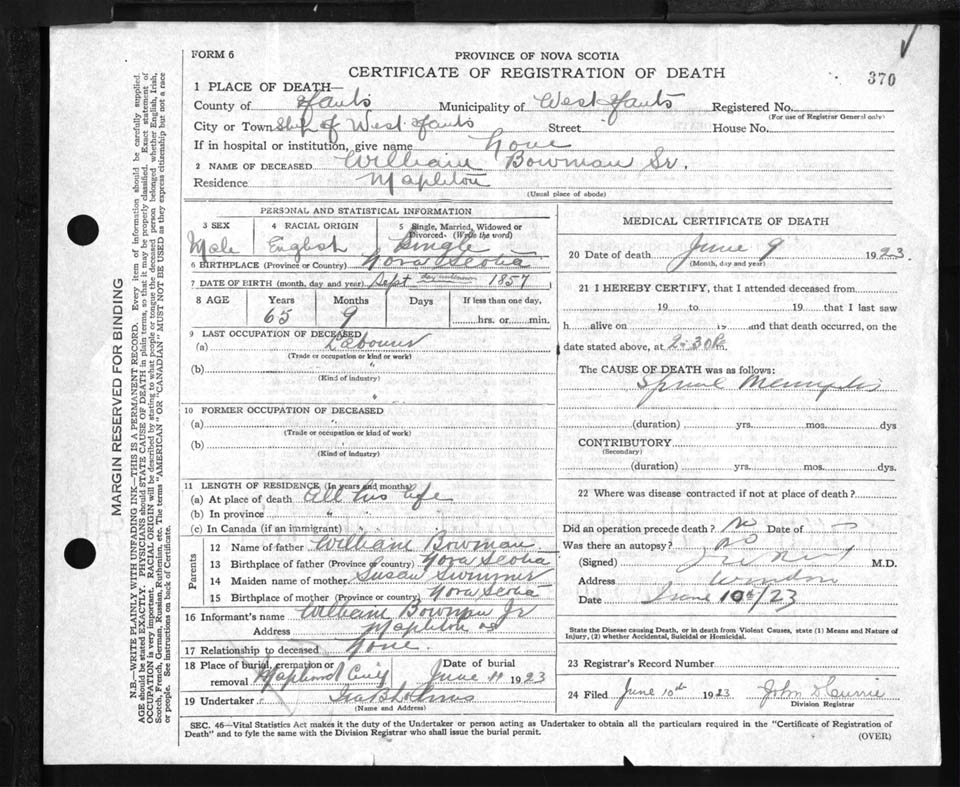 FORM 6
PROVINCE OF NOVA SCOTIA
CERTIFICATE OF REGISTRATION OF DEATH
370
1 PLACE OF DEATH—
County of Hants Municipality of West Hants Registered No.
(For use of Registrar General only)
City or Town of West Hants Street House No.
If in hospital or institution, give name None
2 NAME OF DECEASED William Bowman Sr.
Residence Mapleton
(Usual place of abode)
PERSONAL AND STATISTICAL INFORMATION
3 SEX 4 RACIAL ORIGIN 5 Single, Married, Widowed or Divorced. (Write the word)
Male English Single
6 BIRTHPLACE (Province or Country) Nova Scotia
7 DATE OF BIRTH (month, day and year) Sept day unknown 1857
8 AGE Years Months Days If less than one day,
65 9 hrs. or min.
9 LAST OCCUPATION OF DECEASED
(a) Labourer
(Trade or occupation or kind or work)
(b) "
(Kind of industry)
"
10 FORMER OCCUPATION OF DECEASED
(a)
(Trade or occupation or kind of work)
(b)
(Kind of industry)
11 LENGTH OF RESIDENCE (In years and months)
(a) At place of death All his life
(b) In province " "
(c) In Canada (if an immigrant) " "
Parents
12 Name of father William Bowman
13 Birthplace of father (Province or country) Nova Scotia
14 Maiden name of mother Susan Swimmer
15 Birthplace of mother (Province or country) Nova Scotia
16 Informant's name William Bowman Jr
Address Mapleton
17 Relationship to deceased None
18 Place of burial, cremation or removal Date of burial June 11 1923
19 Undertaker
(Name and Address)
MEDICAL CERTIFICATE OF DEATH
20 Date of death June 9 1923
(Month, day and year)
21 I HEREBY CERTIFY, that I attended deceased from
19 to 19 that I last saw
h alive on 19 and that death occurred, on the
date stated above, at 2-30 P.m.
The CAUSE OF DEATH was as follows:
(duration) yrs. mos. dys
CONTRIBUTORY
(Secondary)
(duration) yrs. mos. dys.
22 Where was disease contracted if not at place of death?
Did an operation precede death? No Date of
Was there an autopsy? no
(Signed) M.D.
Address Windsor
Date June 10th/23
State the Disease causing Death, or in death from Violent Causes, state (1) Means and Nature of
Injury, (2) whether Accidental, Suicidal or Homicidal.
23 Registrar's Record Number
24 Filed June 10th 1923 John D Currie
Division Registrar
SEC. 46—Vital Statistics Act makes it the duty of the Undertaker or person acting as Undertaker to obtain all the particulars required in the "Certificate of Registration of
Death" and to fyle the same with the Division Registrar who shall issue the burial permit.
(OVER)
MARGIN RESERVED FOR BINDING
N.B.—WRITE PLAINLY WITH UNFADING INK—THIS IS A PERMANENT RECORD. Every item of information should be carefully supplied.
AGE should be stated EXACTLY. PHYSICIANS should STATE CAUSE OF DEATH in plain terms, so that it may be properly classified. Exact statement of
OCCUPATION is very important. RACIAL ORIGIN will be described by stating to what people or tongue the deceased person belonged whether English, Irish,
Scotch, French, German, Russian, Ruthenian, etc. The terms "AMERICAN" OR "CANADIAN" MUST NOT BE USED as they express citizenship but not a race
or people. See instructions on back of Certificate.